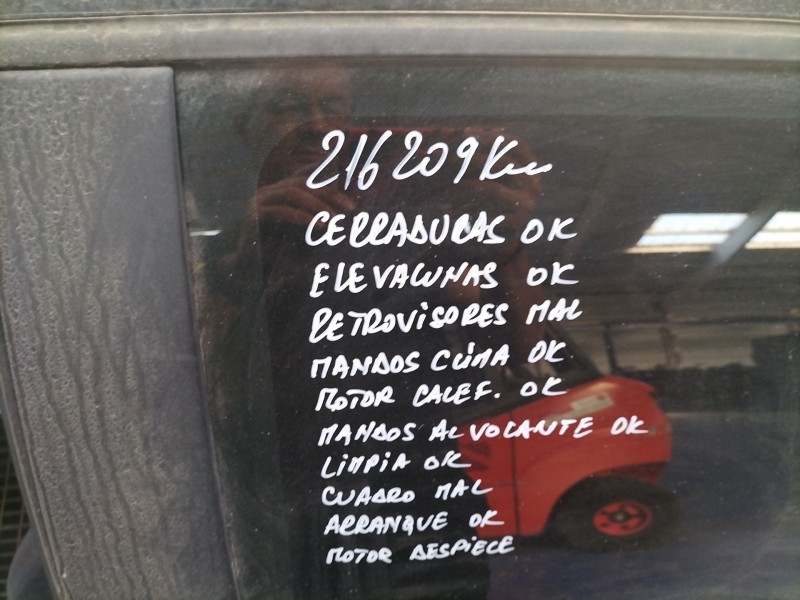 216209 Km
CERRADURAS OK
ELEVALUNAS OK
RETROVISORES MAL
MANDOS CLIMA OK
MOTOR CALEF. OK
MANDOS AL VOLANTE OK
LIMPIA OK
CUADRO MAL
ARRANQUE OK
MOTOR DESPIECE